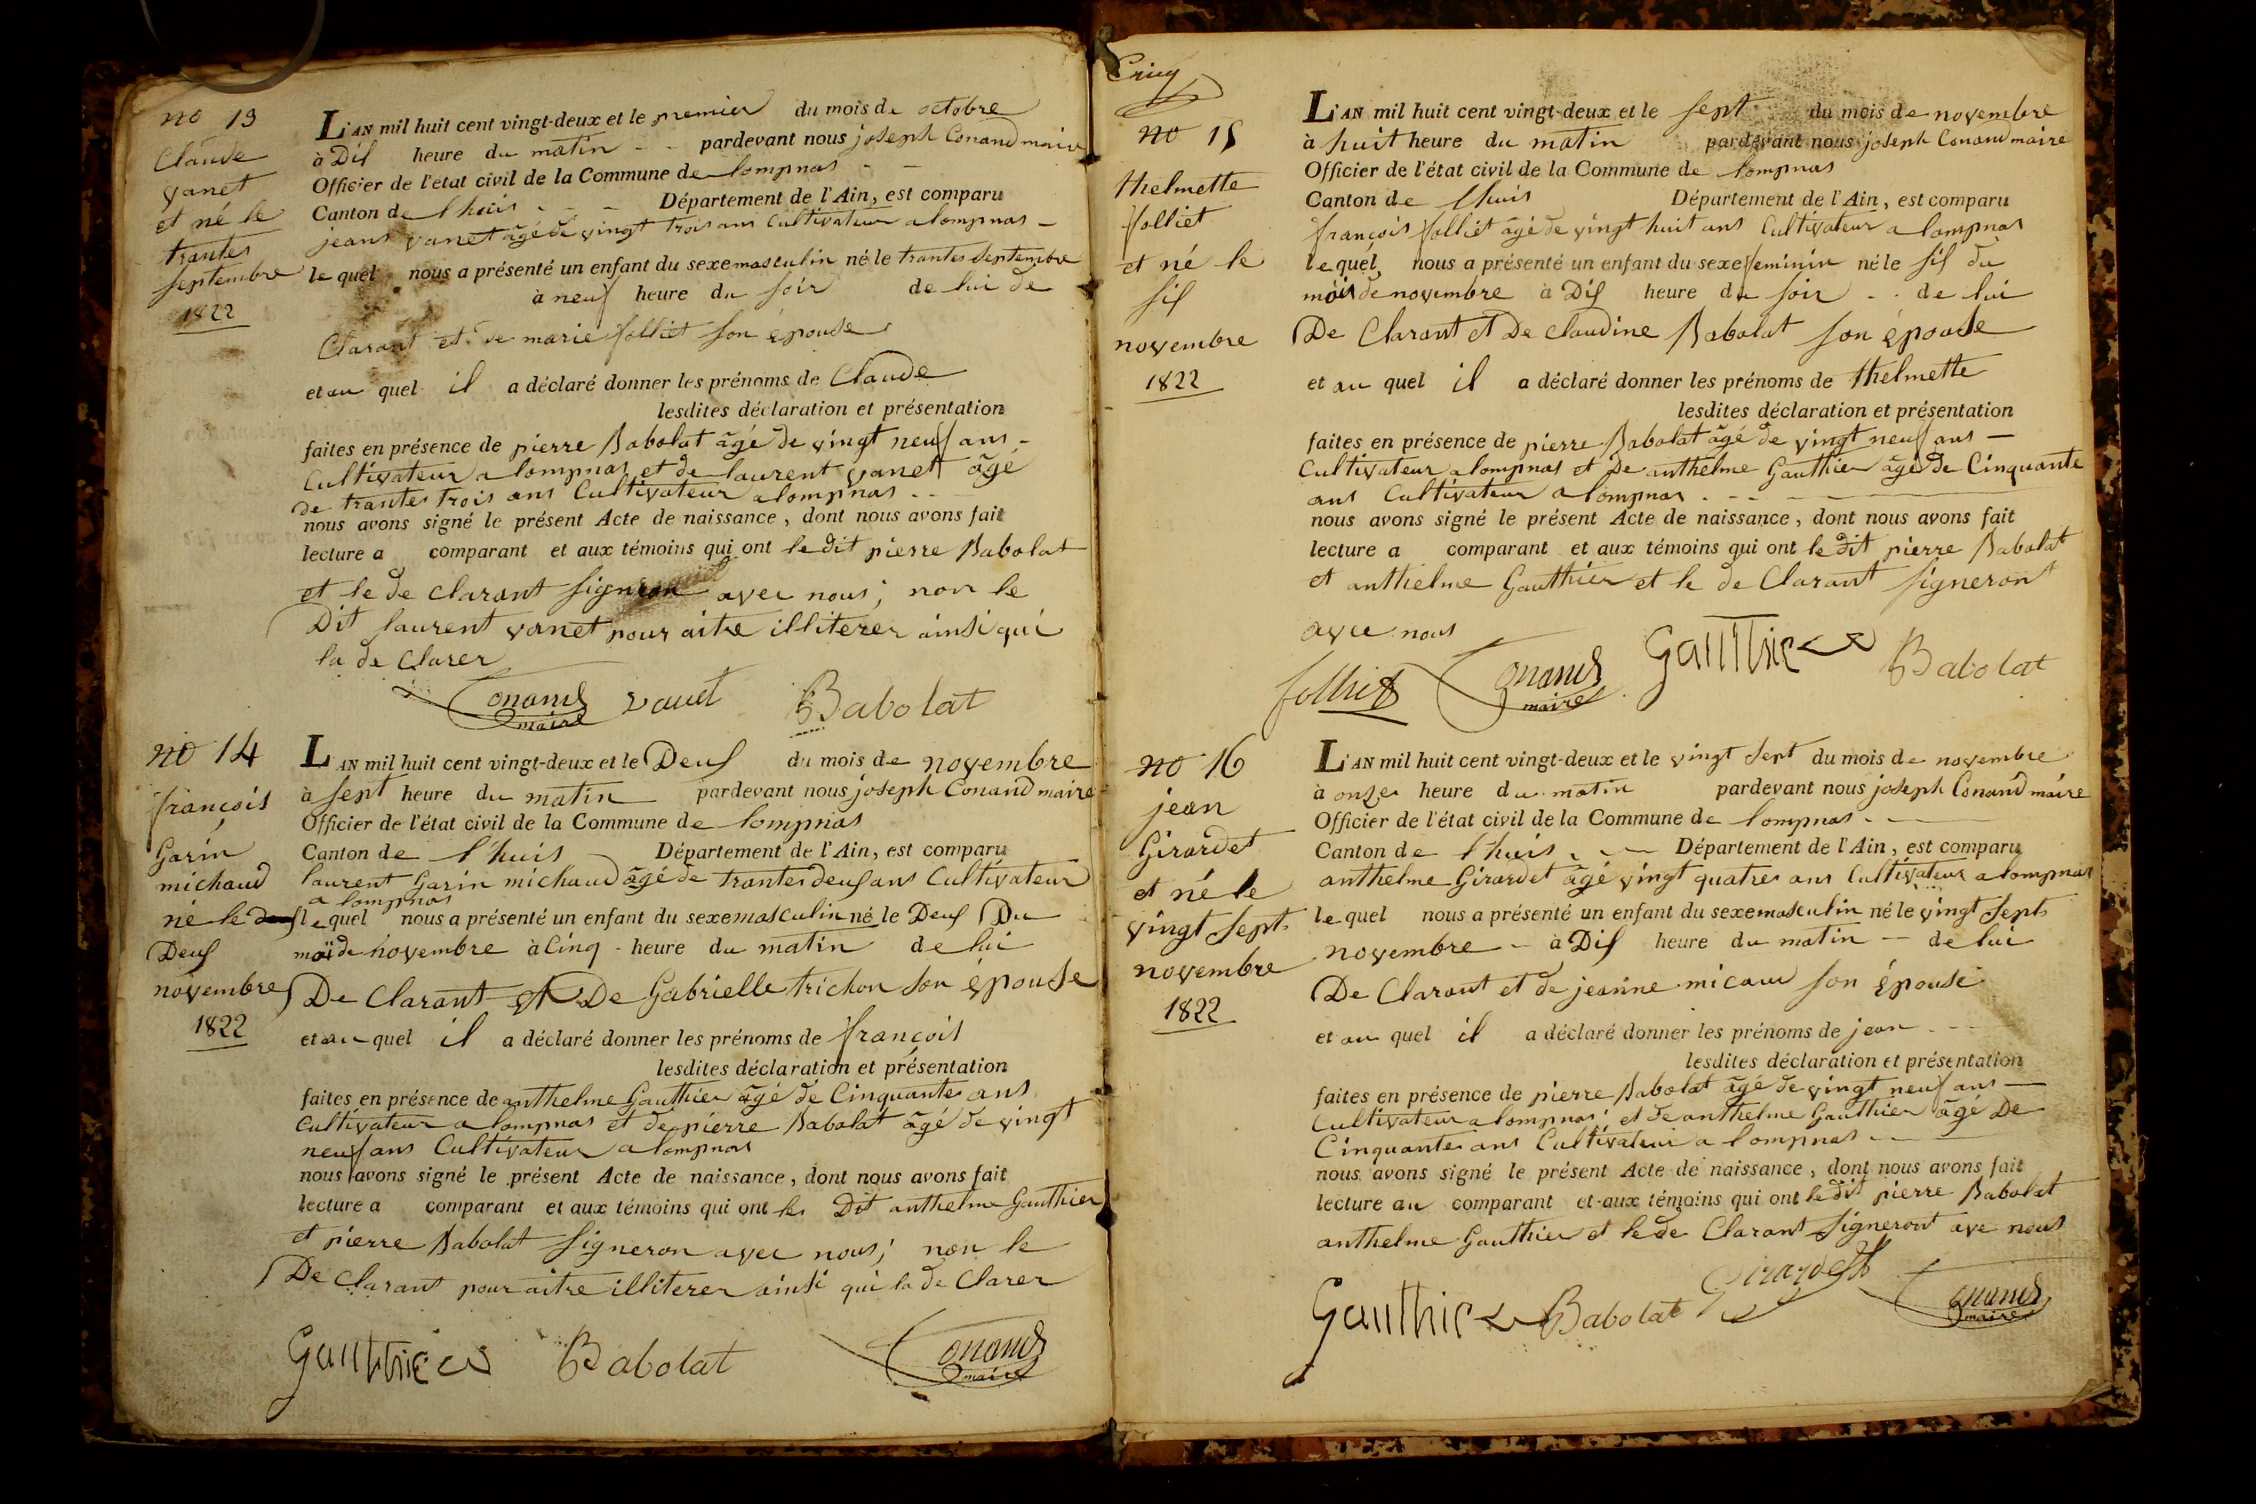 no 13
Claude
vanet
et né le
trantes
septembre
1822
L'AN mil huit cent vingt-deux et le premier du mois de octobre
à Dis heure du matin - - pardevant nous joseph Conand maire
Officier de l'etat civil de la Commune de lompnas
Canton de l'huis - - Département de l'Ain, est comparu
jeans vanet âgé de vingt trois ans Cultivateur a lompnas -
le quel nous a présenté un enfant du sexe masculin né le trantes septembre
à neuf heure du soir de lui de
Clarant et de marie folliet son épouse
et au quel il a déclaré donner les prénoms de Claude
lesdites déclaration et présentation
faites en présence de pierre Babolat âgé de vingt neuf ans -
Cultivateur a lompnas et de laurent vanet âgé
de trantes trois ans Cultivateur a lompnas - -
nous avons signé le présent Acte de naissance, dont nous avons fait
lecture a comparant et aux témoins qui ont le dit pierre Babolat
et le de clarant signeron avec nous; non le
Dit laurent vanet pour aitre illiterer ainsi qui
la de Clarer
Conand maire vanet Babolat
no 14
françois
Garin
michaud
né le deus
Deus
novembre
1822
L'AN mil huit cent vingt-deux et le Deus du mois de novembre
à sept heure du matin pardevant nous joseph Conand maire
Officier de l'état civil de la Commune de lompnas
Canton de l'huis Département de l'Ain, est comparu
laurent Garin michaud âgé de trantes deus ans Cultivateur
a lompnas
le quel nous a présenté un enfant du sexe masculin né le Deus Du
mois de novembre à Cinq - heure du matin de lui
De Clarant et De Gabrielle trichon son épouse
et au quel il a déclaré donner les prénoms de françois
lesdites déclaration et présentation
faites en présence de anthelme Gauthier âgé de Cinquantes ans
Cultivateur a lompnas et de pierre Babolat âgé de vingt
neuf ans Cultivateur a lompnas
nous avons signé le présent Acte de naissance, dont nous avons fait
lecture a comparant et aux témoins qui ont les Dit anthelme Gauthier
et pierre Babolat signeron avec nous; non le
De Clarant pour aitre illiterer ainsi qui la de Clarer
Gauthier Babolat Conand maire
no 15
thelmette
folliet
et né le
sis
novembre
1822
L'AN mil huit cent vingt-deux et le sept du mois de novembre
à huit heure du matin pardevant nous joseph Conand maire
Officier de l'état civil de la Commune de lompnas
Canton de l'huis Département de l'Ain, est comparu
françois folliet âgé de vingt huit ans Cultivateur a lompnas
le quel nous a présenté un enfant du sexe feminin né le sis du
mois de novembre à Dis heure du soir - - de lui
De Clarant et De claudine Babolat son épouse
et au quel il a déclaré donner les prénoms de thelmette
lesdites déclaration et présentation
faites en présence de pierre Babolat âgé de vingt neuf ans -
Cultivateur a lompnas et de anthelme Gauthier âgé de Cinquante
ans Cultivateur a lompnas - - -
nous avons signé le présent Acte de naissance, dont nous avons fait
lecture a comparant et aux témoins qui ont le dit pierre Babolat
et anthelme Gauthier et le de Clarant signeront
avec nous
folliet Conand maire Gauthier Babolat
no 16
jean
Girardet
et né le
vingt sept
novembre
1822
L'AN mil huit cent vingt-deux et le vingt sept du mois de novembre
à onzes heure du matin pardevant nous joseph Conand maire
Officier de l'état civil de la Commune de lompnas - -
Canton de l'huis - - Département de l'Ain, est comparu
anthelme Girardet âgé vingt quatres ans Cultivateur a lompnas
le quel nous a présenté un enfant du sexe masculin né le vingt sept
novembre - à Dis heure du matin - de lui
De Clarant et de jeanne micaud son épouse
et au quel il a déclaré donner les prénoms de jean - - -
lesdites déclaration et présentation
faites en présence de pierre Babolat âgé de vingt neuf ans -
Cultivateur a lompnas; et de anthelme Gauthier âgé De
Cinquantes ans Cultivateur a lompnas - -
nous avons signé le présent Acte de naissance, dont nous avons fait
lecture au comparant et aux témoins qui ont le dit pierre Babolat
anthelme Gauthier et le de Clarant signeront ave nous
Gauthier Babolat Girardet Conand maire